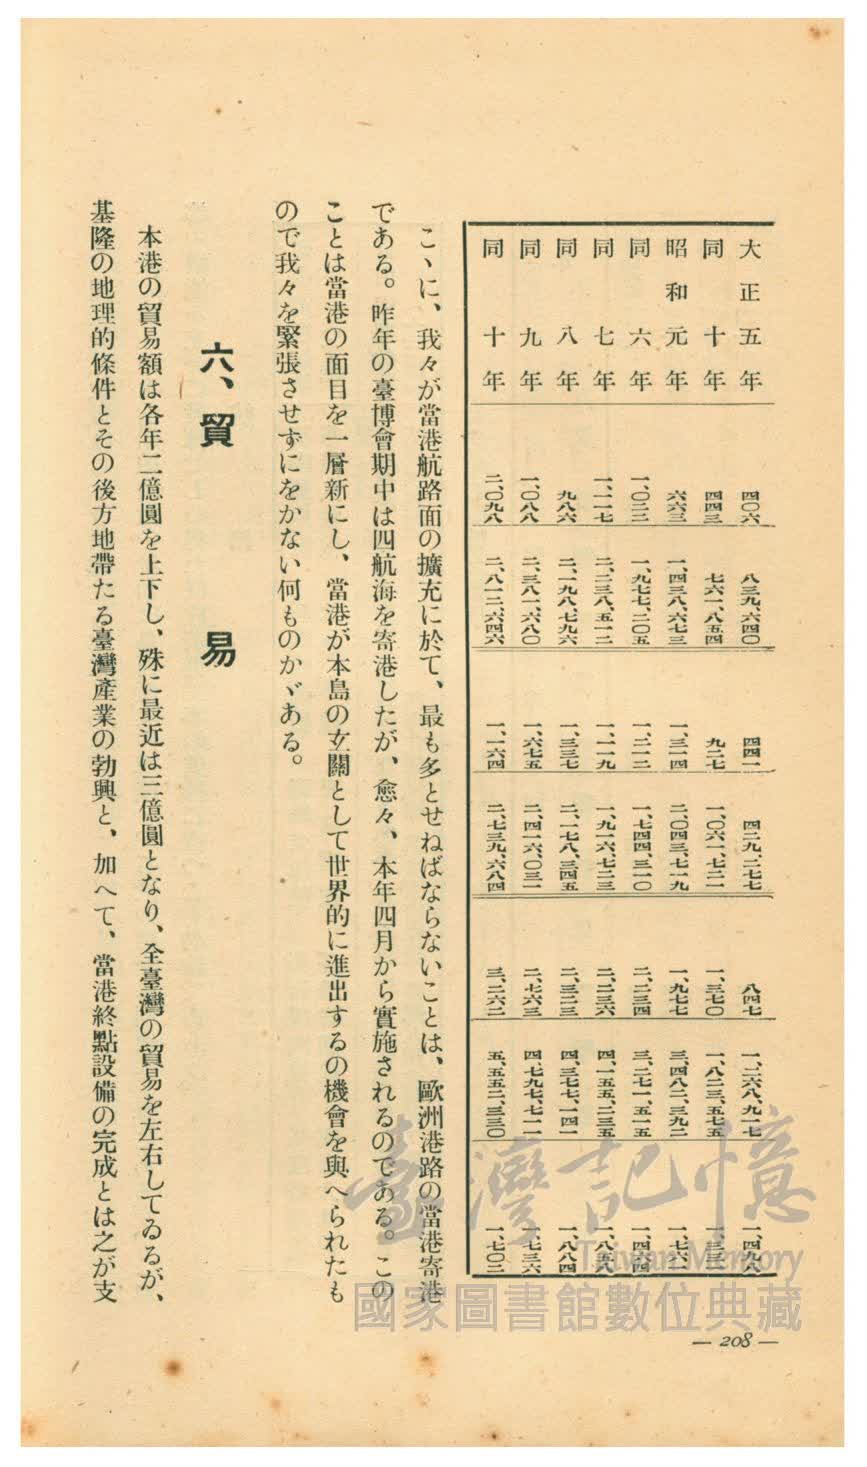 大正五年 四〇六 八三九、六四〇 四四一 四二九、二七七 八四七 一、二六八、九一七 一、四九八
同十年 四四三 七六一、八五四 九二七 一、〇六一、七二一 一、三七〇 一、八二三、五七五 一、三三一
昭和元年 六六三 一、四三八、六七三 一、三一四 二、〇四三、七一九 一、九七七 三、四八二、三九二 一、七六一
同六年 一、〇二二 一、九七七、二〇五 一、二一二 一、七四四、三一〇 二、二三四 三、二七一、五一五 一、四六四
同七年 一、一一七 二、二三八、五一二 一、一一九 一、九一六、七二三 二、二三六 四、一五五、二三五 一、八五八
同八年 九八六 二、一九八、七九六 一、三三七 二、一七八、三四五 二、三二三 四、三七七、一四一 一、八八四
同九年 一、〇八八 二、三八一、六八〇 一、六七五 二、四一六、〇三一 二、七六三 四、七九七、七一一 一、七三六
同十年 二、〇九八 二、八一二、六四六 一、一六四 二、七三九、六八四 三、二六二 五、五五二、三三〇 一、七〇二
こゝに、我々が當港航路面の擴充に於て、最も多とせねばならないことは、歐洲港路の當港寄港
である。昨年の臺博會期中は四航海を寄港したが、愈々、本年四月から實施されるのである。この
ことは當港の面目を一層新にし、當港が本島の玄關として世界的に進出するの機會を與へられたも
ので我々を緊張させずにをかない何ものかゞある。
六、貿易
本港の貿易額は各年二億圓を上下し、殊に最近は三億圓となり、全臺灣の貿易を左右してゐるが、
基隆の地理的條件とその後方地帶たる臺灣產業の勃興と、加へて、當港終點設備の完成とは之が支
臺灣記憶
Taiwan Memory
國家圖書館數位典藏
— 208 —